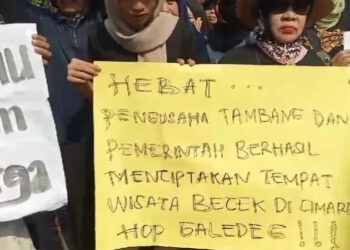 HEBAT...
PENGUSAHA TAMBANG DAN
PEMERINTAH BERHASIL
MENCIPTAKAN TEMPAT
WISATA BECEK DI CIMARE
HOP GALEDEG!!!